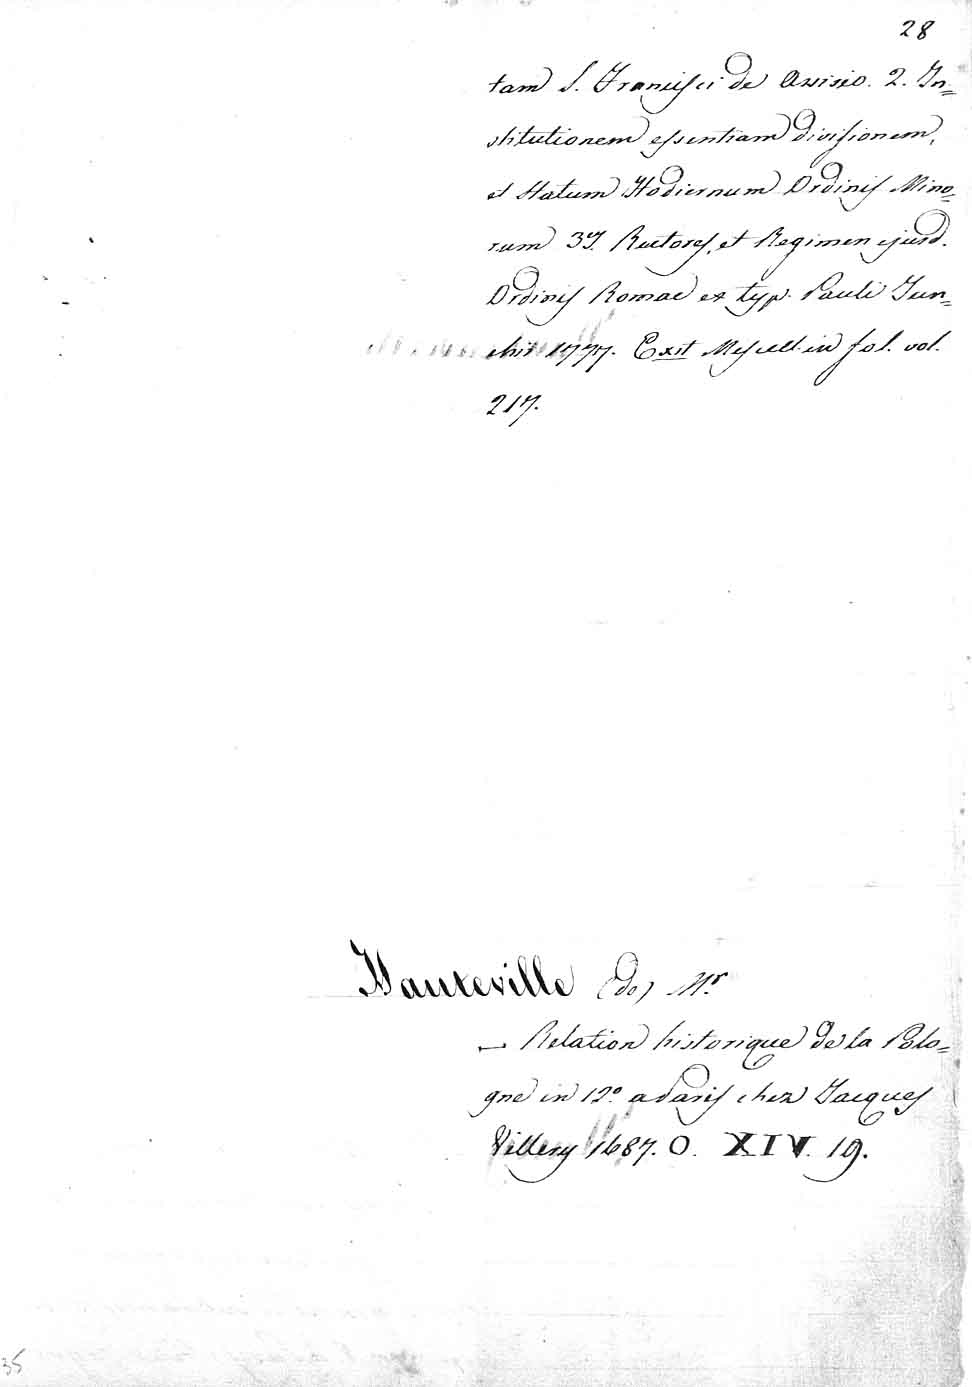 28
tam S. Francisci de Assisio. 2. In=
stitutionem essentiam divisionem,
et Statum Hodiernum Ordinis Mino=
rum 3º. Rectores, et Regimen ejusd.
Ordinis Romae ex typ. Pauli Jun=
chi 1777. Exit Miscell. in fol. vol.
217.
Hauteville (de) Mr.
— Relation historique de la Polo=
gne in 12º a Paris chez Jacques
Villery 1687. O. XIV. 19.
35